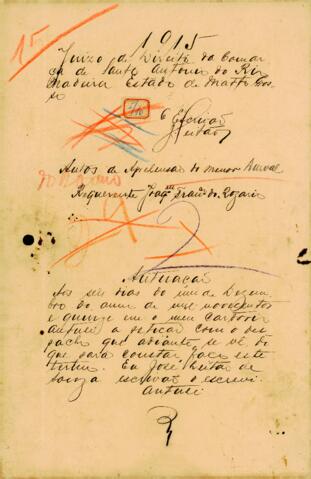 15
1915
Juizo de Direito da Comar
ca de Santo Antonio do Rio
Madeira Estado de Matto Gros
so
O Escrivão
Leitão
Autos de Apprehensão do menor Durval
Requerente Joaqm do Rozario
Autuação
Aos seis dias do mez de Dezem
bro do anno de mil novecentos
e quinze em o meu Cartorio
autuei a petição com o des
pacho que adiante se vê, do
que para constar faço este
termo. Eu José Leitão de
Souza escrivão o escrevi
Autuei